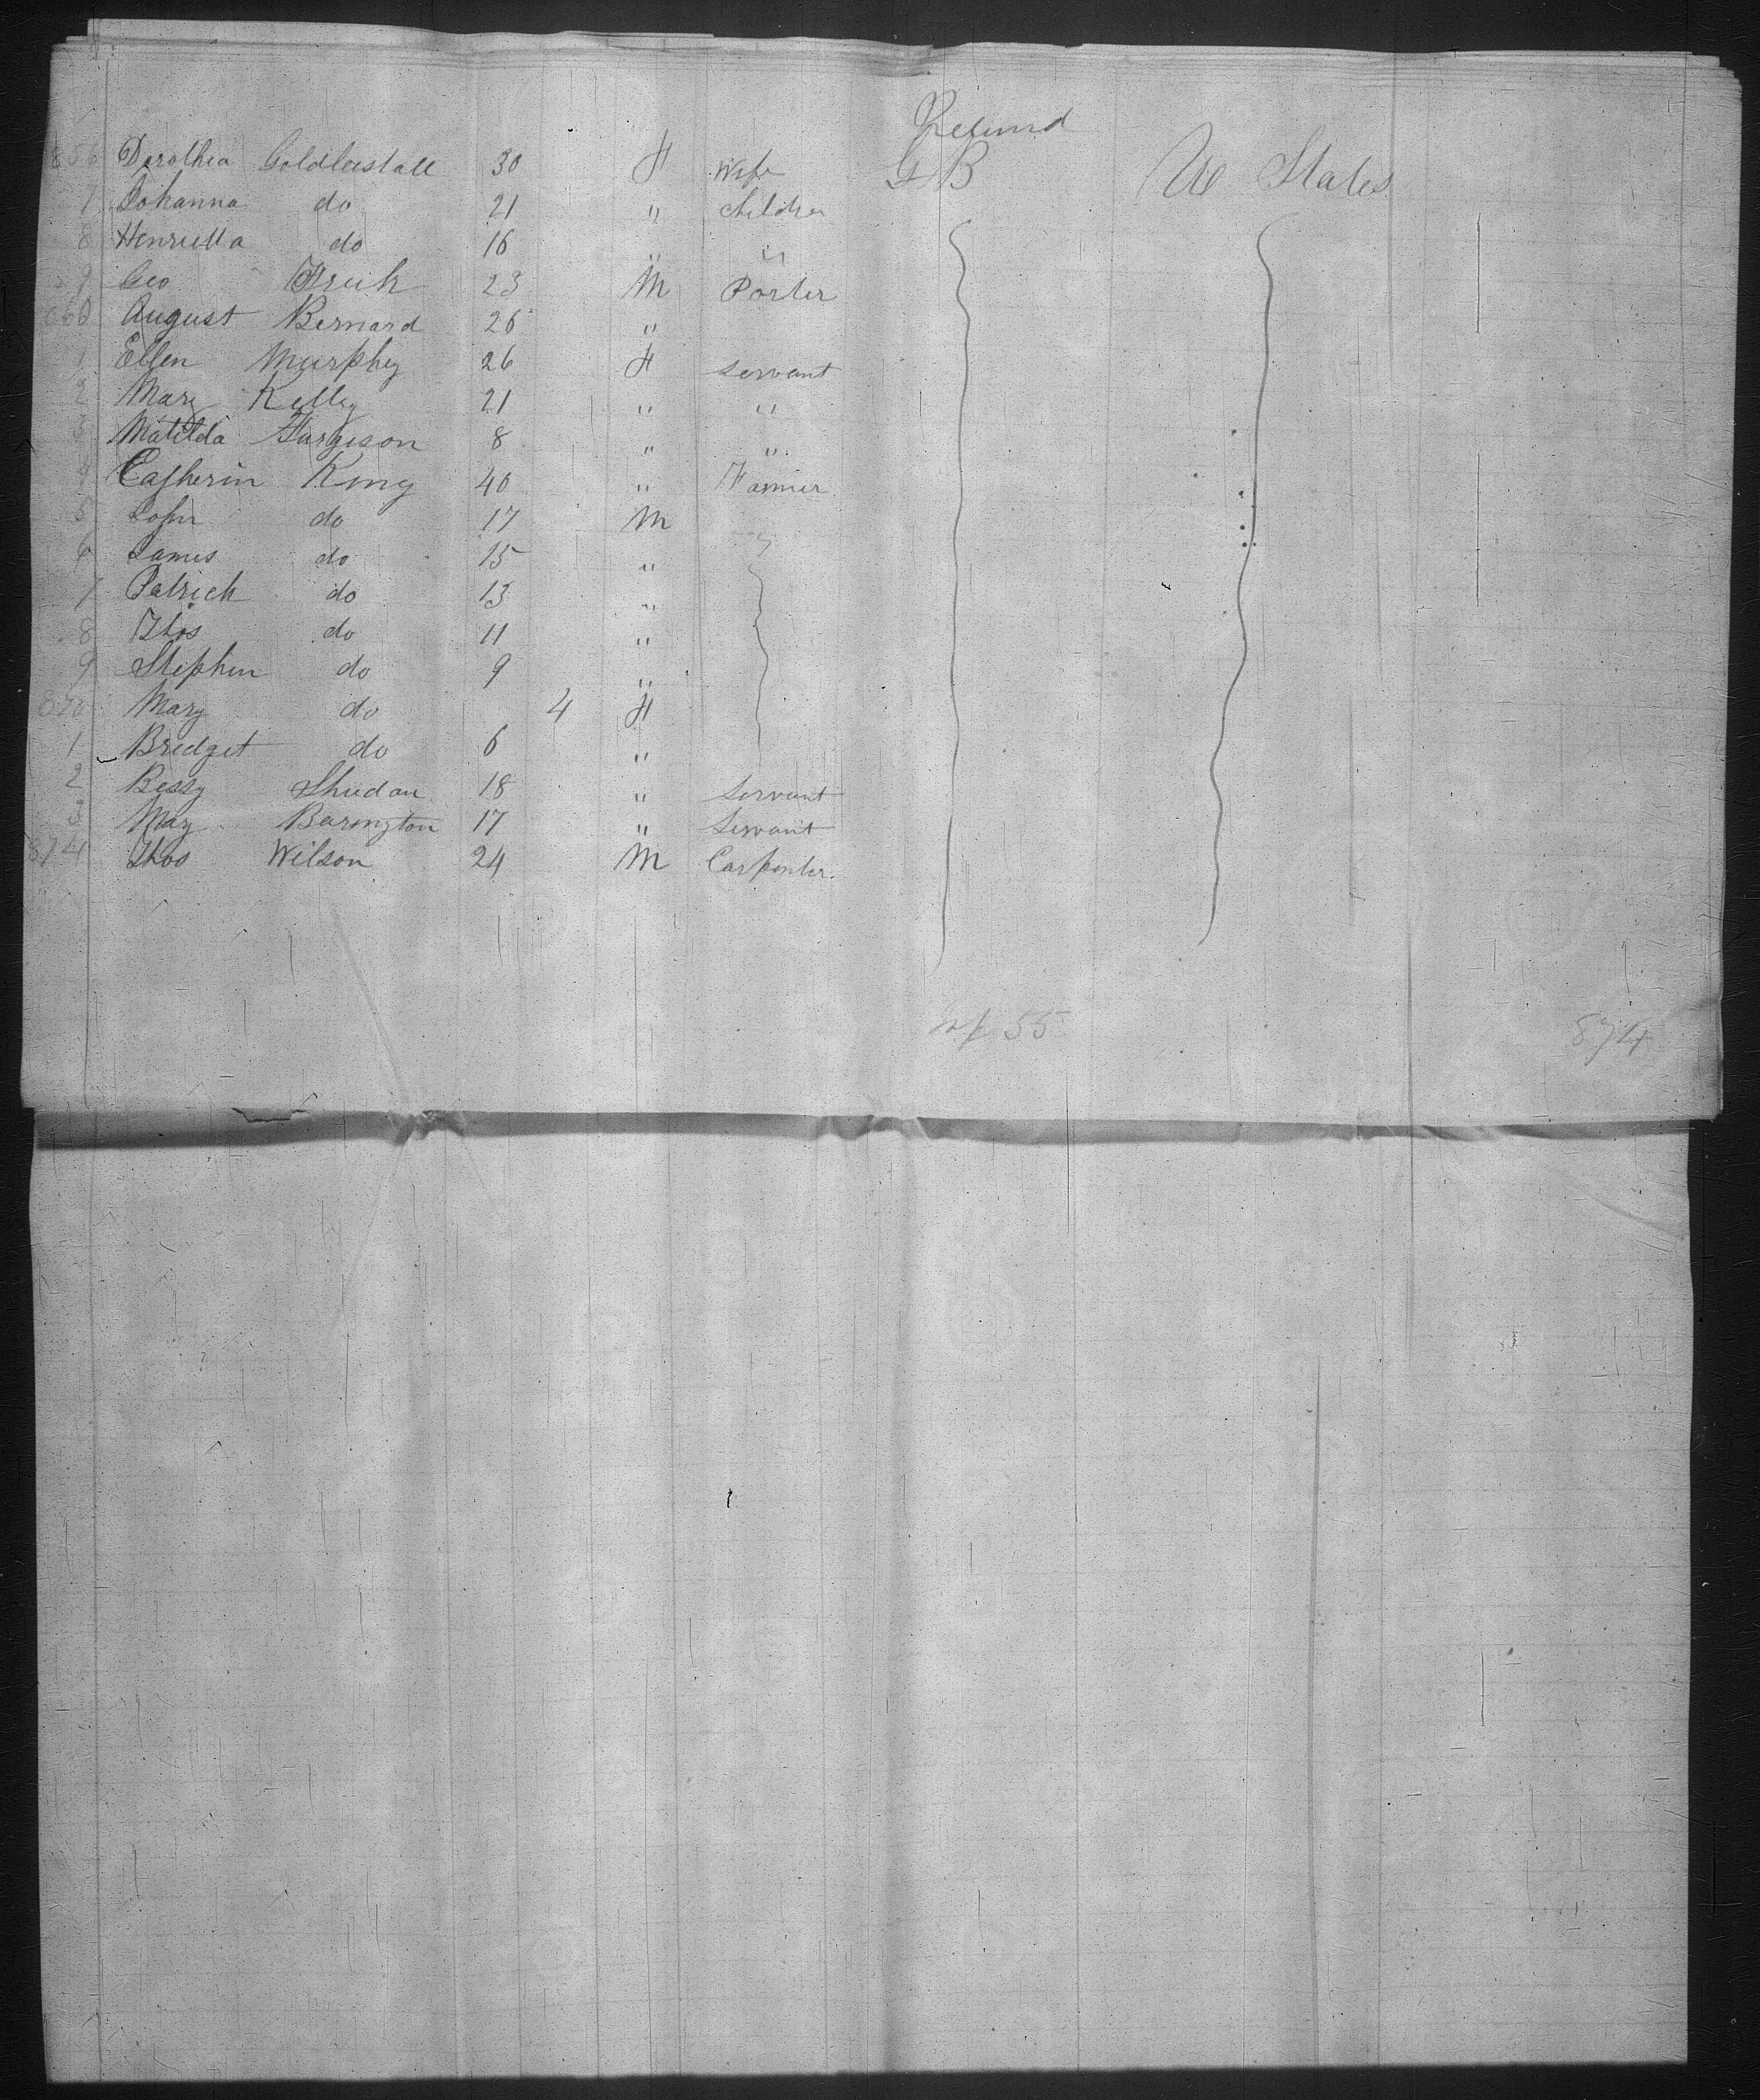 Ireland
856 Dorothea 30 F Wife G B U States
7 Johanna do 21 " Children
8 Henrietta do 16 " "
9 Geo 23 M Porter
860 August Bernard 26 "
1 Ellen Murphy 26 F Servant
2 Mary Kelley 21 " "
3 Matilda Furgison 8 " "
4 Catherin King 40 " Farmer
5 John do 17 M
6 James do 15 "
7 Patrick do 13 "
8 Thos do 11 "
9 Stephen do 9 "
870 Mary do 4 F
1 Bridget do 6 "
2 Bessy 18 " Servant
3 Mary Barington 17 " Servant
874 Thos Wilson 24 M Carpenter.
55 874